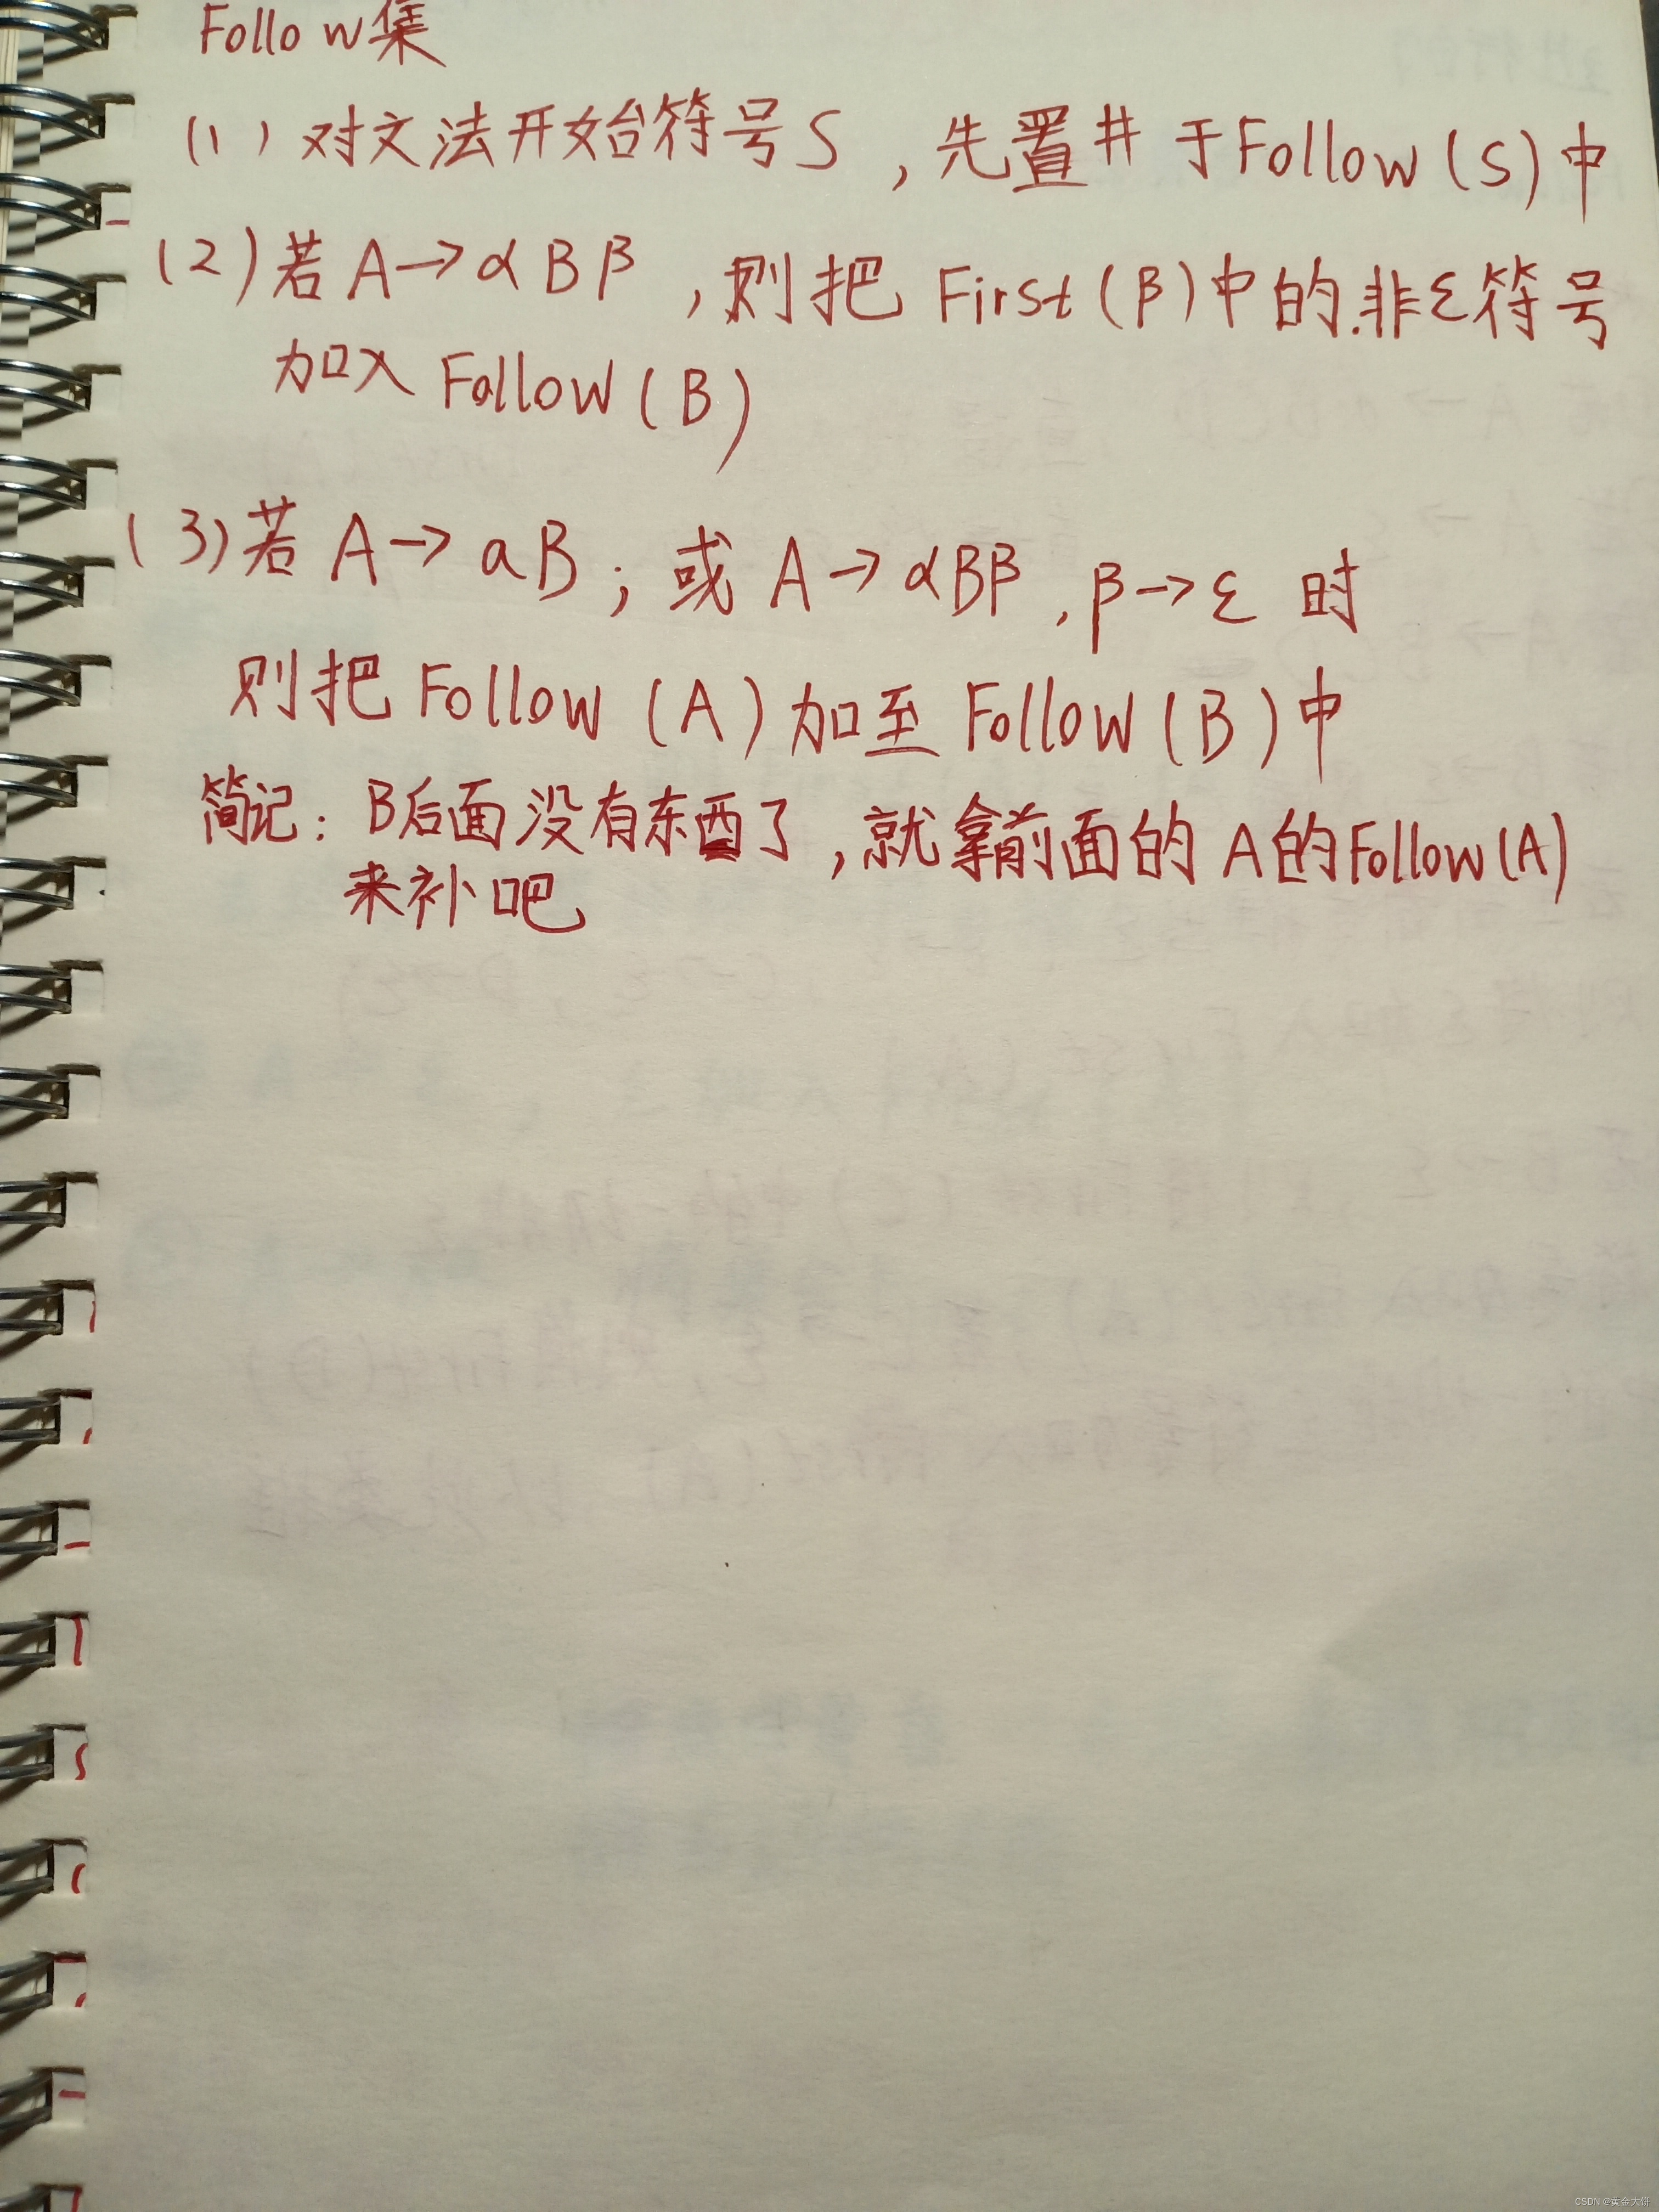 Follow集
(1)对文法开始符号S,先置#于Follow(S)中
(2)若A→αBβ,则把First(β)中的非ε符号
加入Follow(B)
(3)若A→aB;或A→αBβ,β→ε时
则把Follow(A)加至Follow(B)中
简记:B后面没有东西了,就拿前面的A的Follow(A)
来补吧
CSDN @黄金大饼